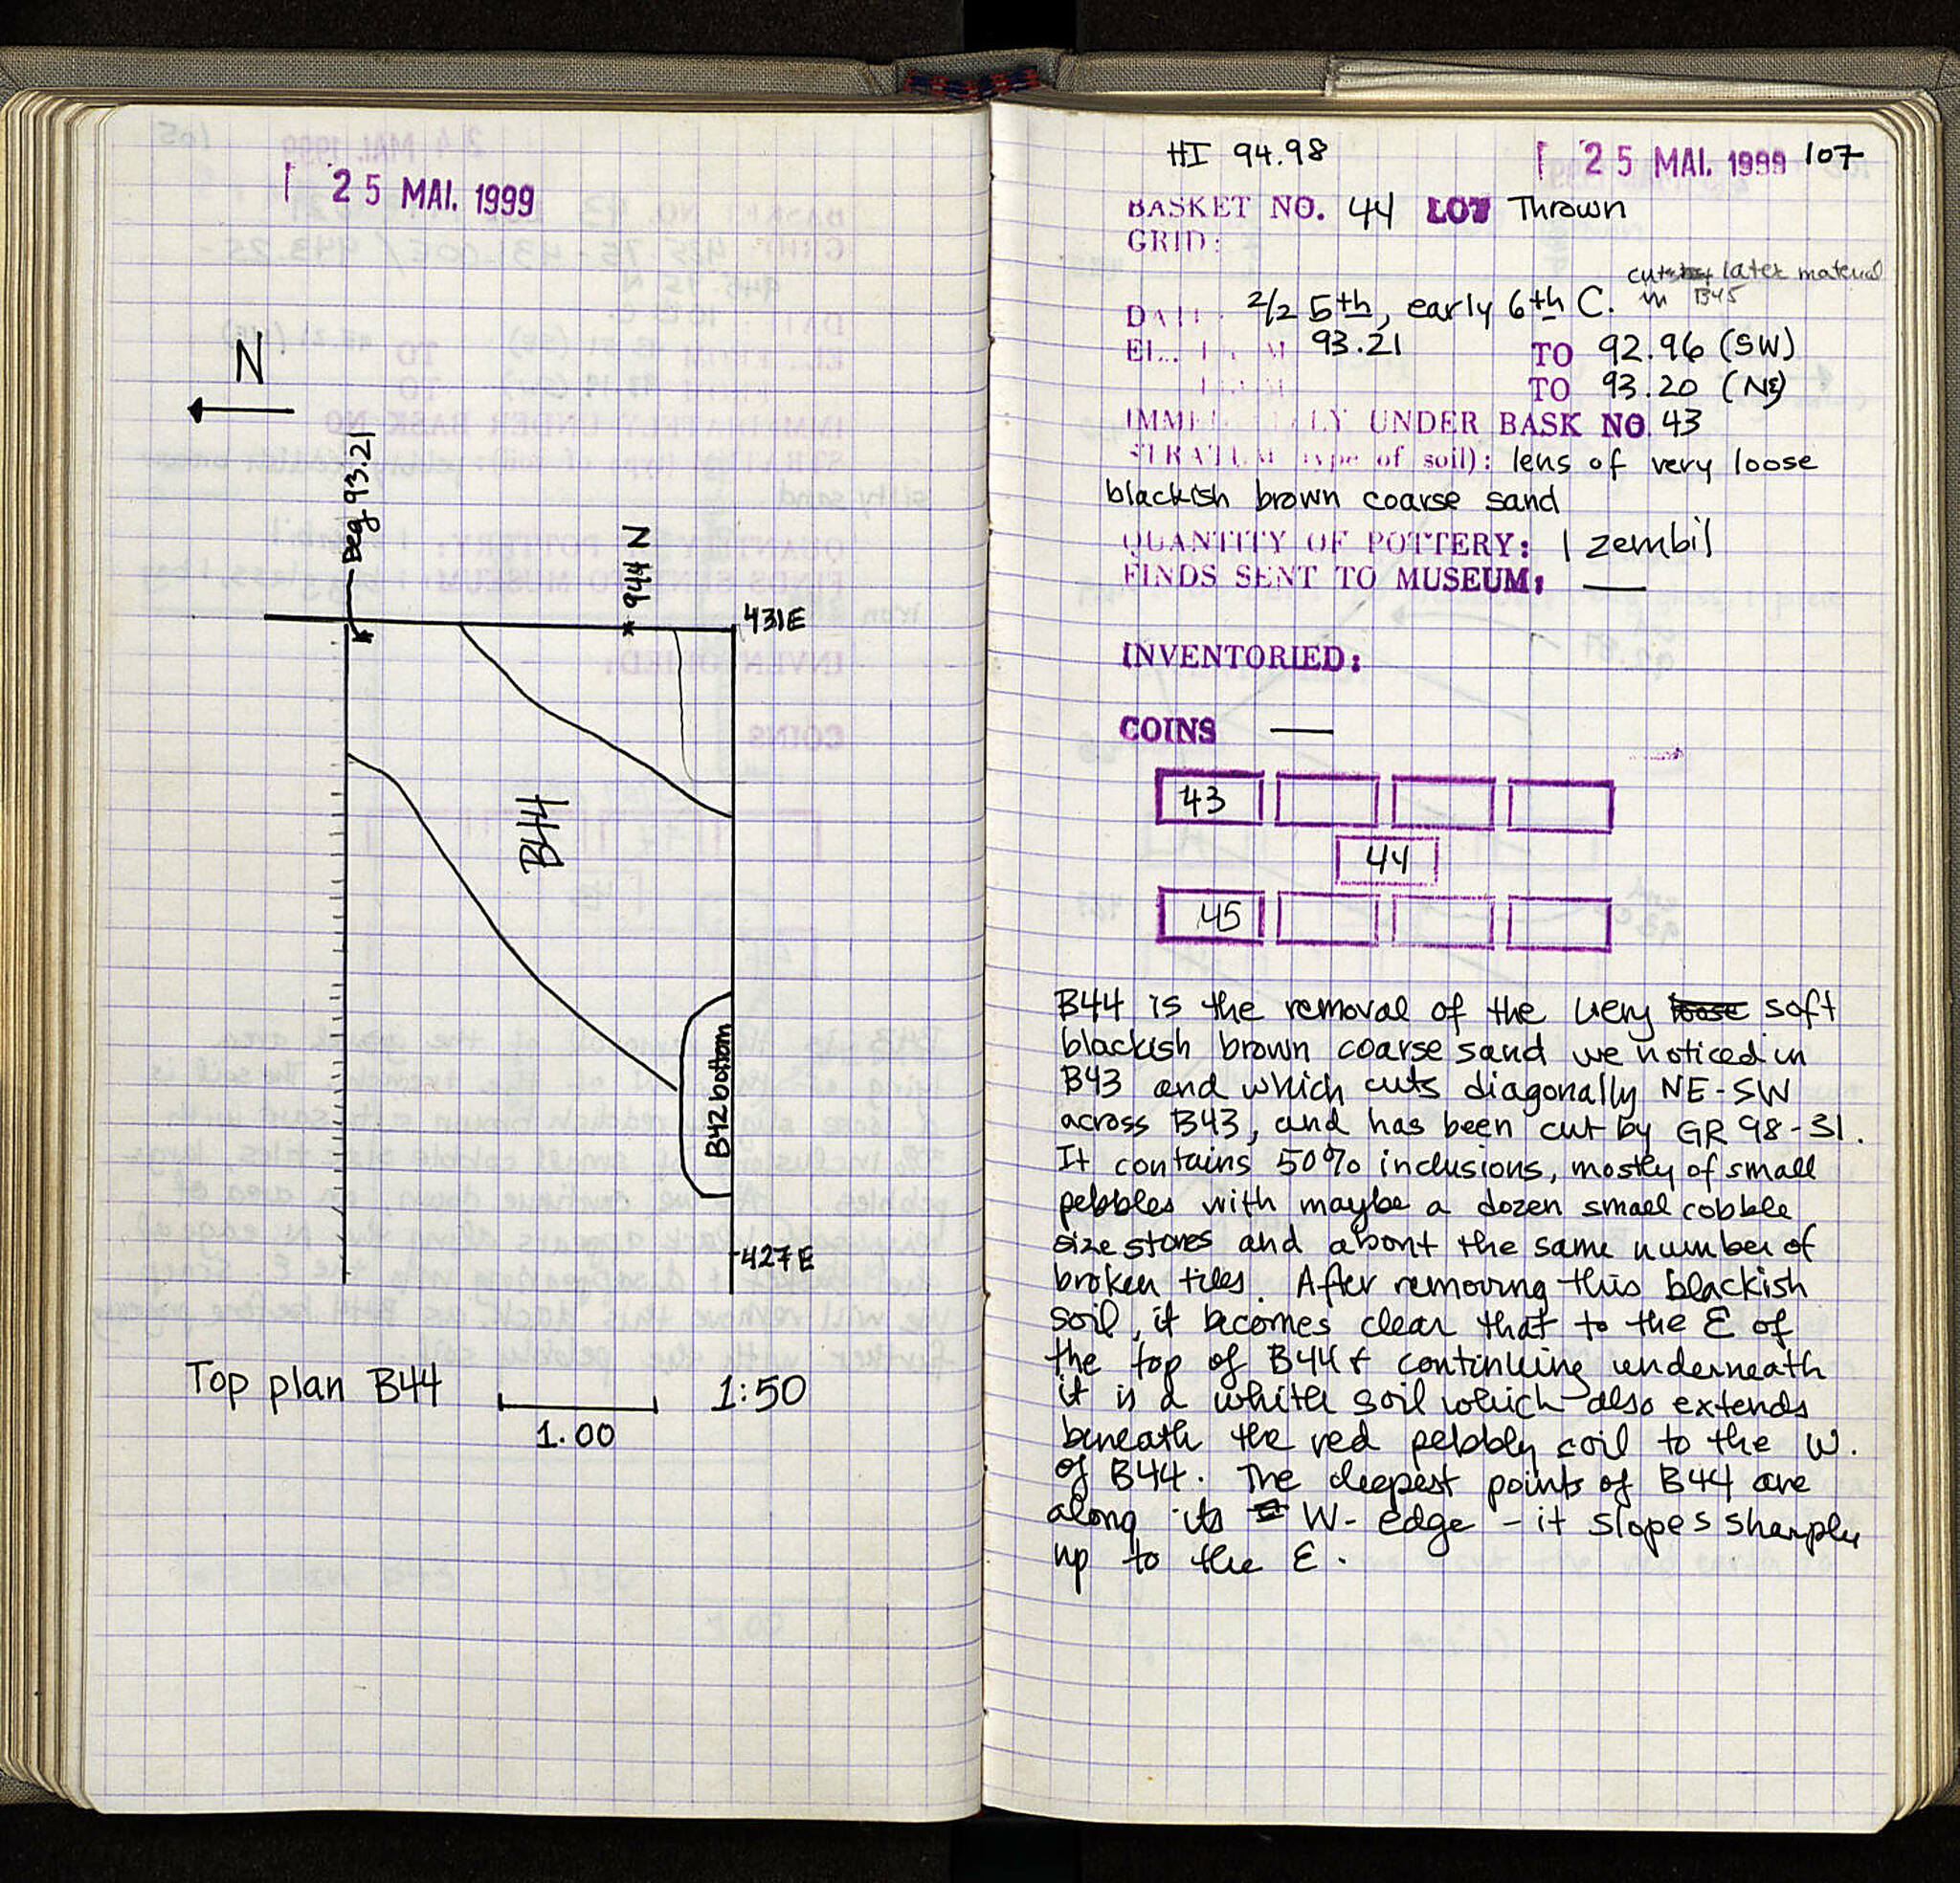 25 MAI. 1999
N
Beg 93.21
944 N
431E
B44
B42 bottom
427E
Top plan B44 1:50
1.00
HI 94.98 25 MAI. 1999 107
BASKET NO. 44 LOT Thrown
GRID:
later material
in B45
2/2 5th, early 6th C.
93.21 TO 92.96 (SW)
TO 93.20 (NE)
UNDER BASK NO. 43
of soil): lens of very loose
blackish brown coarse sand
QUANTITY OF POTTERY: 1 zembil
FINDS SENT TO MUSEUM: —
INVENTORIED:
COINS —
43
44
45
B44 is the removal of the very loose soft
blackish brown coarse sand we noticed in
B43 and which cuts diagonally NE-SW
across B43, and has been cut by GR 98-31.
It contains 50% inclusions, mostly of small
pebbles with maybe a dozen small cobble
size stones and about the same number of
broken tiles. After removing this blackish
soil, it becomes clear that to the E of
the top of B44 & continuing underneath
it is a whiter soil which also extends
beneath the red pebbly soil to the W.
of B44. The deepest points of B44 are
along its W- edge - it slopes sharply
up to the E.